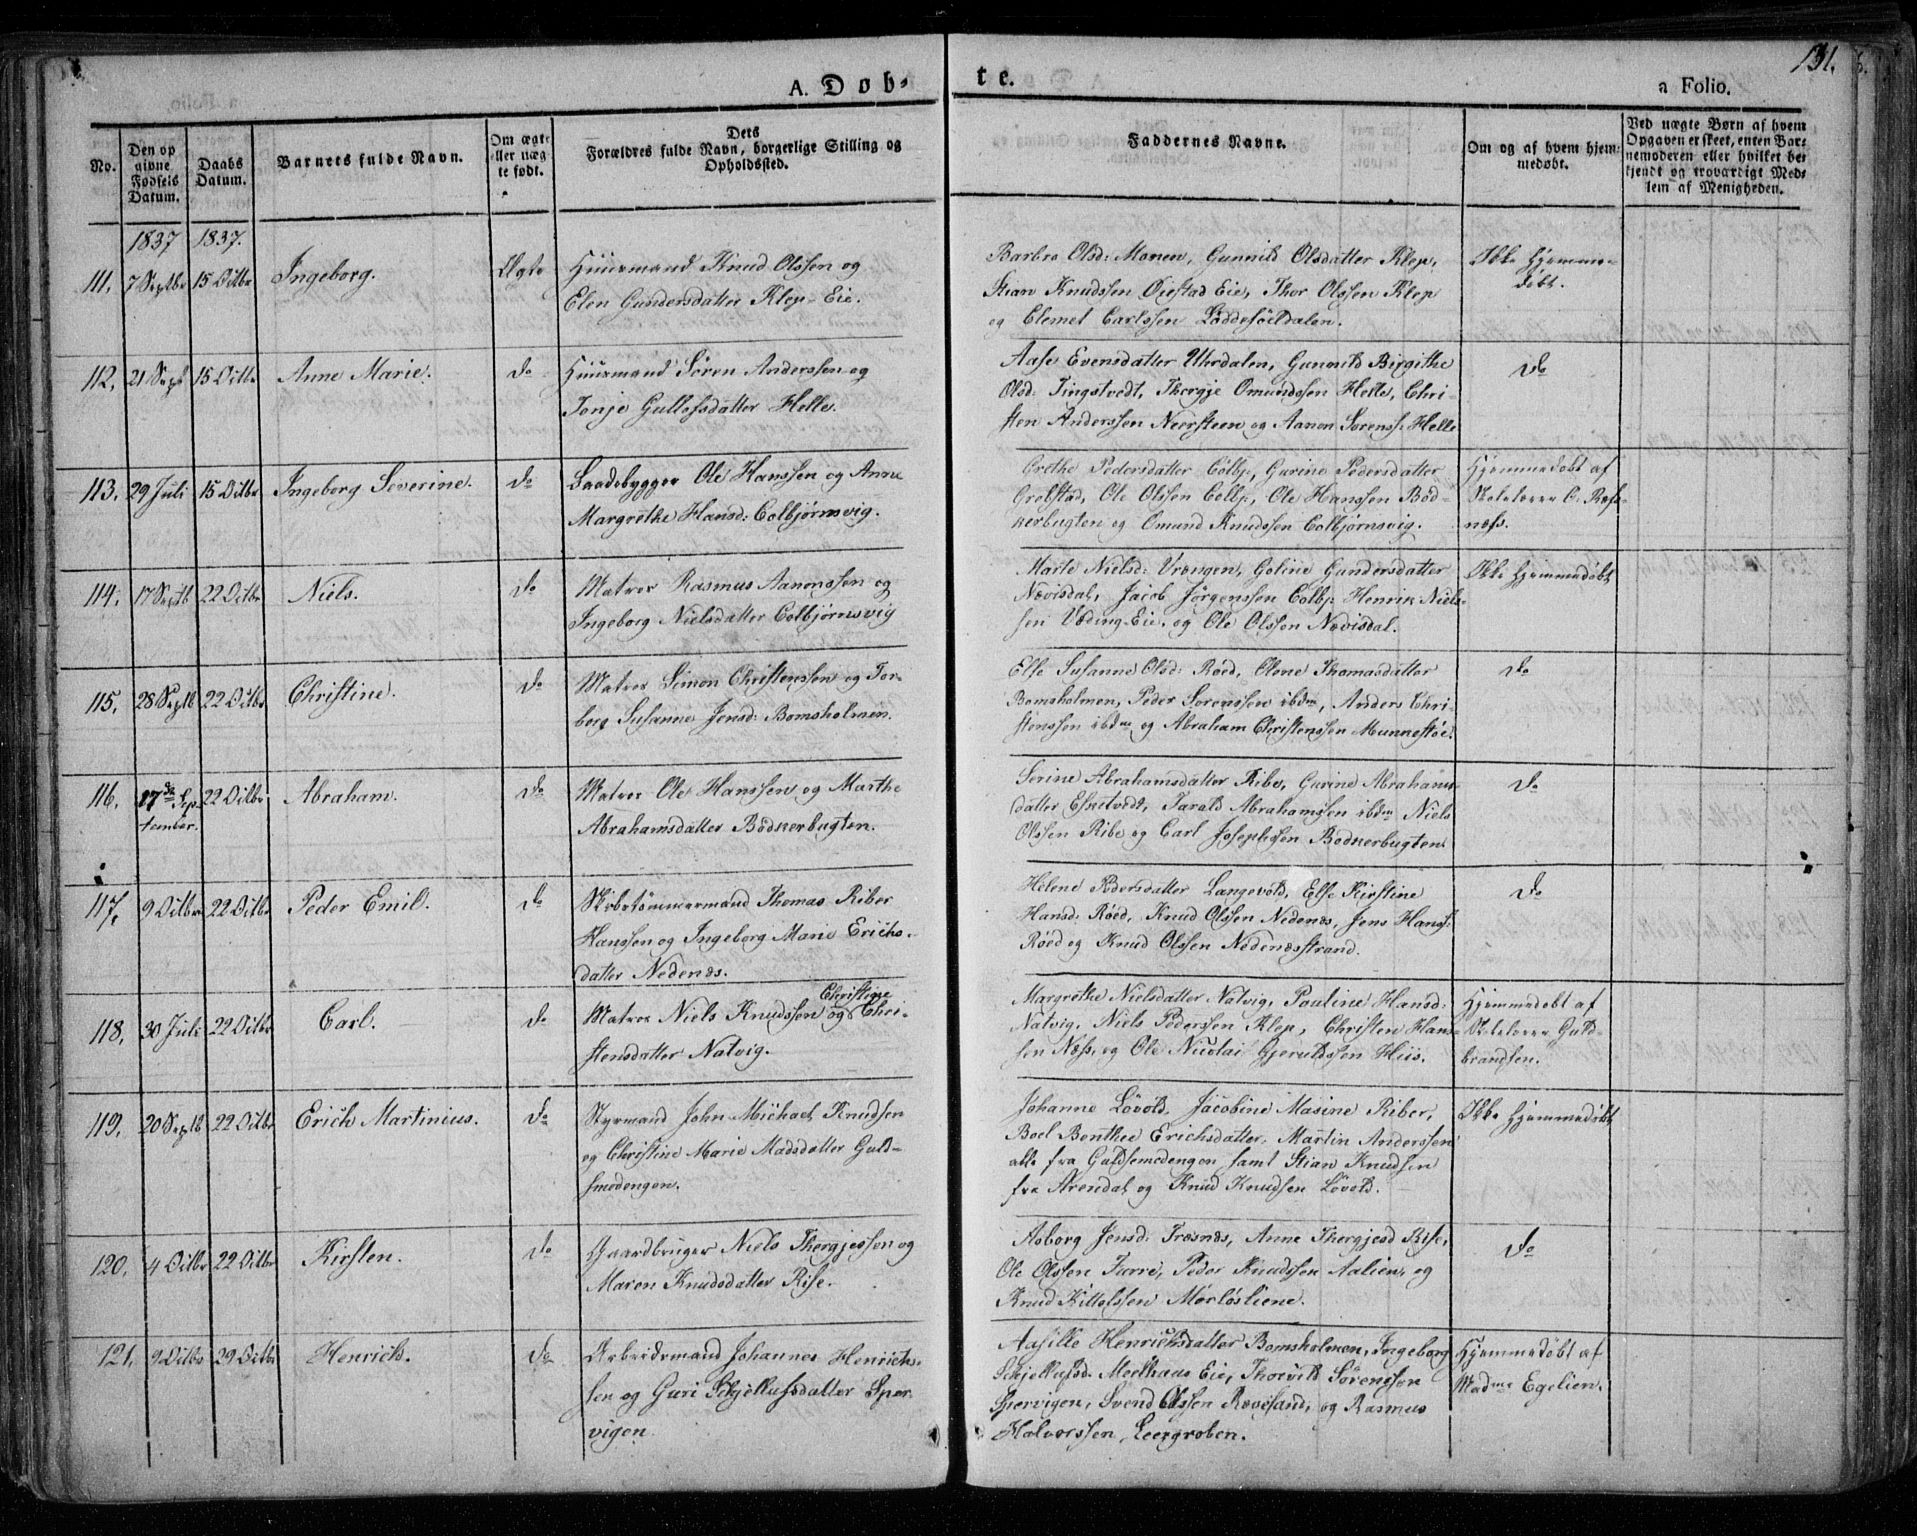 131.
A. Døb-
te.
a Folio.
No.
Den op
givne
Fødsels
Datum.
Daabs
Datum.
Barnets fulde Navn.
Om ægte
eller uæg
te født.
Dets
Forældres fulde Navn, borgerlige Stilling og
Opholdssted.
Faddernes Navne.
Om og af hvem hjem-
medøbt.
Ved uægte Børn af hvem
Opgaven er skeet, enten Bar-
nemoderen eller hvilket be
kjendt og troværdigt Med-
lem af Menigheden.
1837 1837.
111. 7 Septbr 15 Octbr Ingeborg. Ægte
Huusmand Knud Olssen og
Elen Gundersdatter Klep-Eie.
Barbro Olsd: Monen, Gunnild Olsdatter Klep,
Stian Knudssen Øiestad Eie, Thor Olssen Klep
og Clemet Carlssen Løddesøeldalen.
Ikke hjemme-
døbt.
112. 21 Sept 15 Octbr Anne Marie. do
Huusmand Søren Anderssen og
Tonje Gullofsdatter Helle.
Aase Evensdatter Uhrdalen, Gunnild Birgithe
Olsd: Tingstvedt, Thergje Omundssen Helle, Chri-
sten Anderssen Neersteen og Aanon Sorenss: Helle
do
113. 29 Juli 15 Octbr Ingeborg Severine. do
Baadsbygger Ole Hanssen og Anne
Margrethe Hansd: Colbjørnsvig.
Grethe Pedersdatter Colbj, Gurine Pedersdatter
Grølstad, Ole Olssen Colbj, Ole Hanssen Bød-
kerbugten og Omund Knudssen Colbjørnsvig.
Hjemmedøbt af
Skolelærer O. Refs-
næss.
114. 17 Septb 22 Octbr Niels. do
Matros Rasmus Aanonssen og
Ingeborg Nielsdatter Colbjørnsvig
Marte Nielsd: Vrengen, Goline Gundersdatter
Nævisdal, Jacob Jørgenssen Colbj: Henrik Niels-
sen Væding Eie, og Ole Olssen Nævisdal.
Ikke hjemmedøbt
115. 28 Septb 22 Octbr Christine. do
Matros Simon Christenssen og Tor-
borg Susanne Jensd: Bomsholmen.
Else Susanne Olsd: Røed, Olene Thomasdatter
Bomsholmen, Peder Sorenssen ibdm, Anders Chri-
stenssen ibdm og Abraham Christenssen Munkestøe.
do
116. 17de Sep-
tember. 22 Octbr Abraham. do
Matros Ole Hanssen og Marthe
Abrahamsdatter Bødkerbugten.
Serine Abrahamsdatter Ribe, Gurine Abrahams-
datter Estvedt, Tarald Abrahamssen ibdm Niels
Olssen Ribe og Carl Josephssen Bødkerbugten
do
117. 9 Octbr 22 Octbr Peder Emil. do
Skibstømmermand Thomas Riber
Hanssen og Ingeborg Marie Erichs-
datter Nedenes.
Helene Pedersdatter Langevold, Else Kirstine
Hansd: Røed, Knud Olssen Nedenes, Jens Hanss:
Røed og Knud Olssen Nedenesstrand.
do
118. 30 Juli 22 Octbr Carl. do
Matros Niels Knudssen og Christine Chri-
stensdatter Natvig.
Margrethe Nielsdatter Natvig, Pauline Hansd:
Natvig, Niels Pederssen Klep, Christen Hans-
sen Næss, og Ole Nicolai Gjeruldssen Hiis.
Hjemmedøbt af
Skolelærer Guld-
brandsen.
119. 20 Septb 22 Octbr Erich Martinius. do
Styrmand John Michael Knudsen
og Christine Marie Madsdatter Guld-
smedengen.
Johanne Løvold, Jacobine Masine Riber,
Boel Benthee Erichsdatter, Martin Anderssen
alle fra Guldsmedengen samt Stian Knudsen
fra Arendal og Knud Knudsen Løvold.
Ikke hjemmedøbt
120. 4 Octbr 22 Octbr Kirsten. do
Gaardbruger Niels Thergjessen og
Maren Knudsdatter Rise.
Aaborg Jensd: Træsnæs, Anne Thergjesd Rise,
Ole Olssen Furre, Peder Knudssen Aalien, og
Knud Kittelssen Mørløsliene.
do
121. 9 Octbr 29 Octbr Henrich. do
Arbeidsmand Johannes Henrich-
sen og Guri Schjellufsdatter Sper-
vigen
Aasille Henrichsdatter Bomsholmen, Ingeborg
Schjellufsd. Moelhaus Eie, Thorvild Sørenssen
Spervigen, Svend Olssen Rævesand, og Rasmus
Halvorssen Leergroben.
Hjemmedøbt af
Madme Egelien.